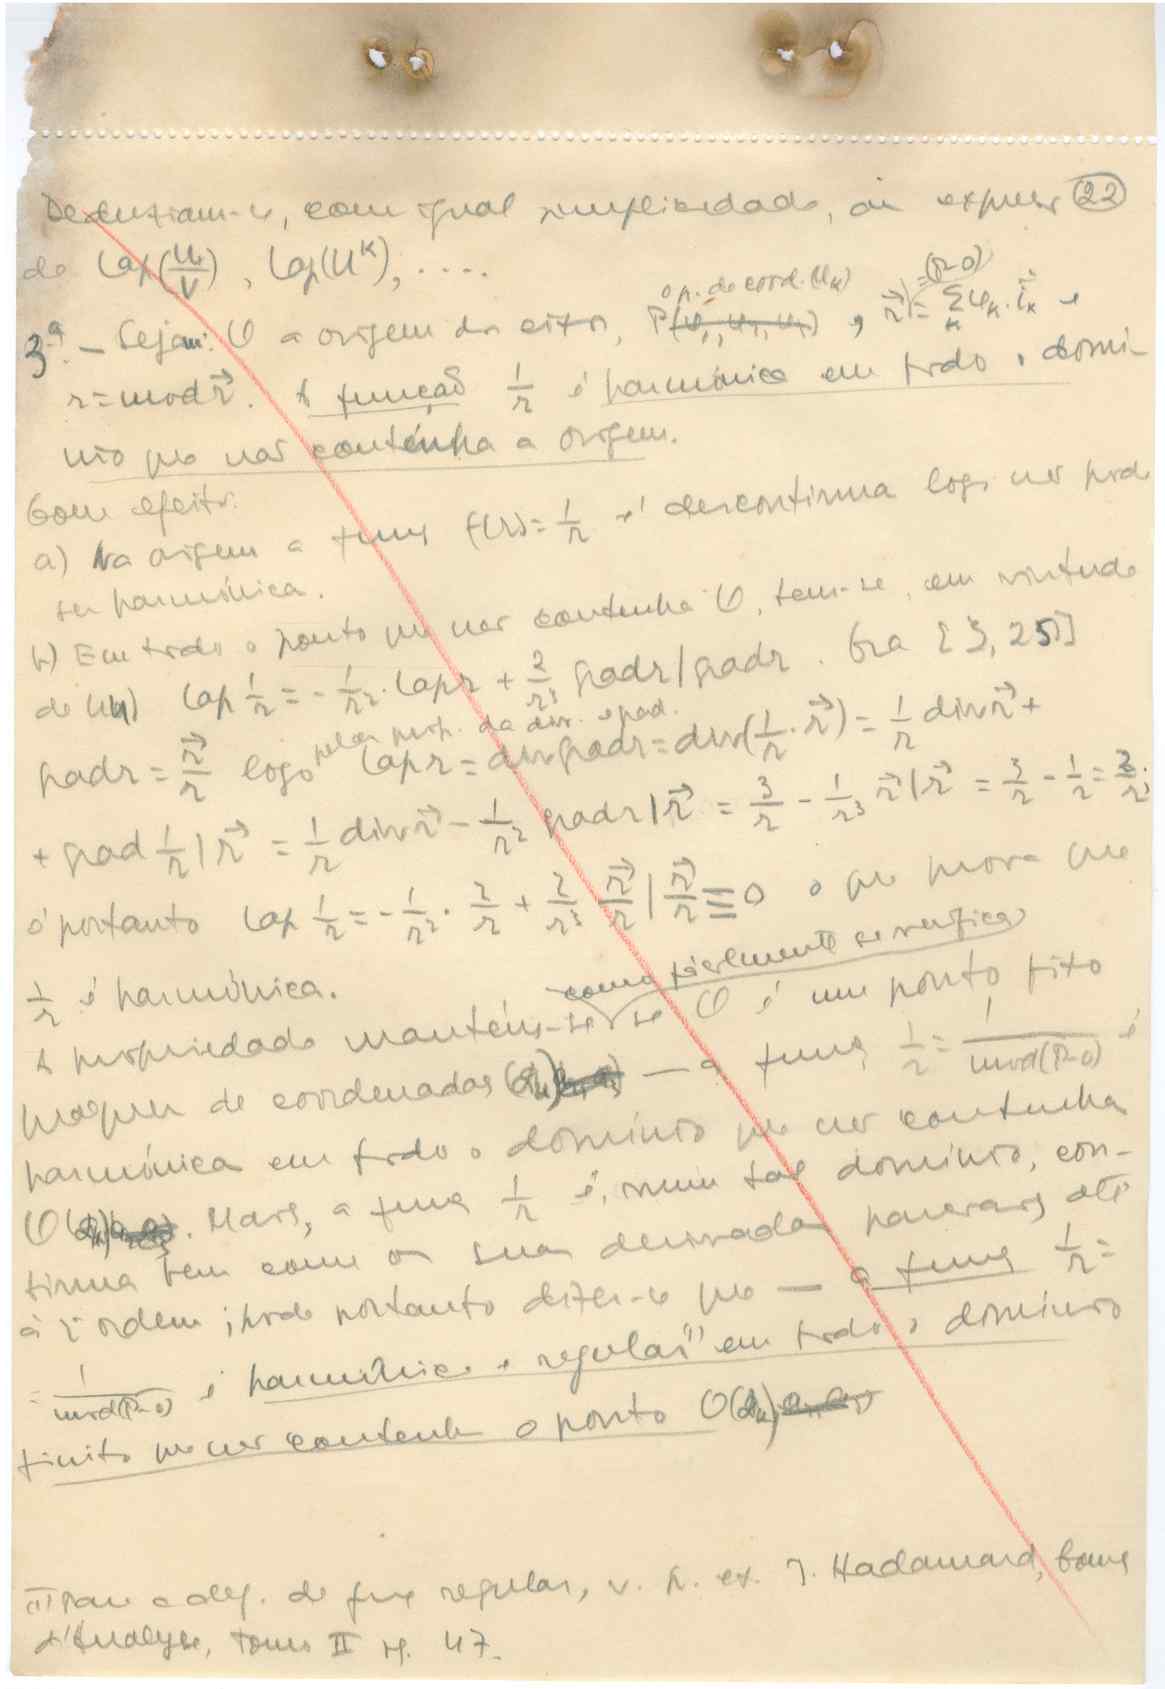 Deduziam-se, com igual simplicidade, as expres (22)
de Lap(u/v), Lap(u^k), ....
op. de coord. (u_k) =(P-O)
3ª - Sejam: O a origem dos eixos, P(u₁, u₂, u₃), r⃗ = Σ_k u_k . i⃗_k e
r = mod r⃗. A função 1/r é harmónica em todo o domí-
nio que não contenha a origem.
Com efeito:
a) Na origem a função f(r) = 1/r é descontínua logo não pode
ser harmónica.
b) Em todo o ponto que não contenha O, tem-se, em virtude
de 44) Lap 1/r = -1/r² . Lap r + 2/r³ grad r | grad r. Ora [3, 25]
pelas prop. da div. e grad.
grad r = r⃗/r logo Lap r = div grad r = div(1/r . r⃗) = 1/r div r⃗ +
+ grad 1/r | r⃗ = 1/r div r⃗ - 1/r² grad r | r⃗ = 3/r - 1/r³ r⃗ | r⃗ = 3/r - 1/r = 2/r;
é portanto Lap 1/r = -1/r² . 2/r + 2/r³ r⃗/r | r⃗/r ≡ 0 o que prova que
1/r é harmónica.
como fàcilmente se verifica
A propriedade mantém-se se O é um ponto fixo
qualquer de coordenadas (a_k) — a função 1/r = 1/mod(P-O) é
harmónica em todo o domínio que não contenha
O(a_k). Mais, a função 1/r é, num tal domínio, con-
tínua bem como as suas derivadas parciais até
à 2ª ordem; pode portanto dizer-se que — a função 1/r =
= 1/mod(P-O) é harmónica e regular(1) em todo o domínio
finito que não contenha o ponto O(a_k)
(1) Para a def. de função regular, v. p. ex. J. Hadamard, Cours
d'Analyse, Tomo II p. 47.